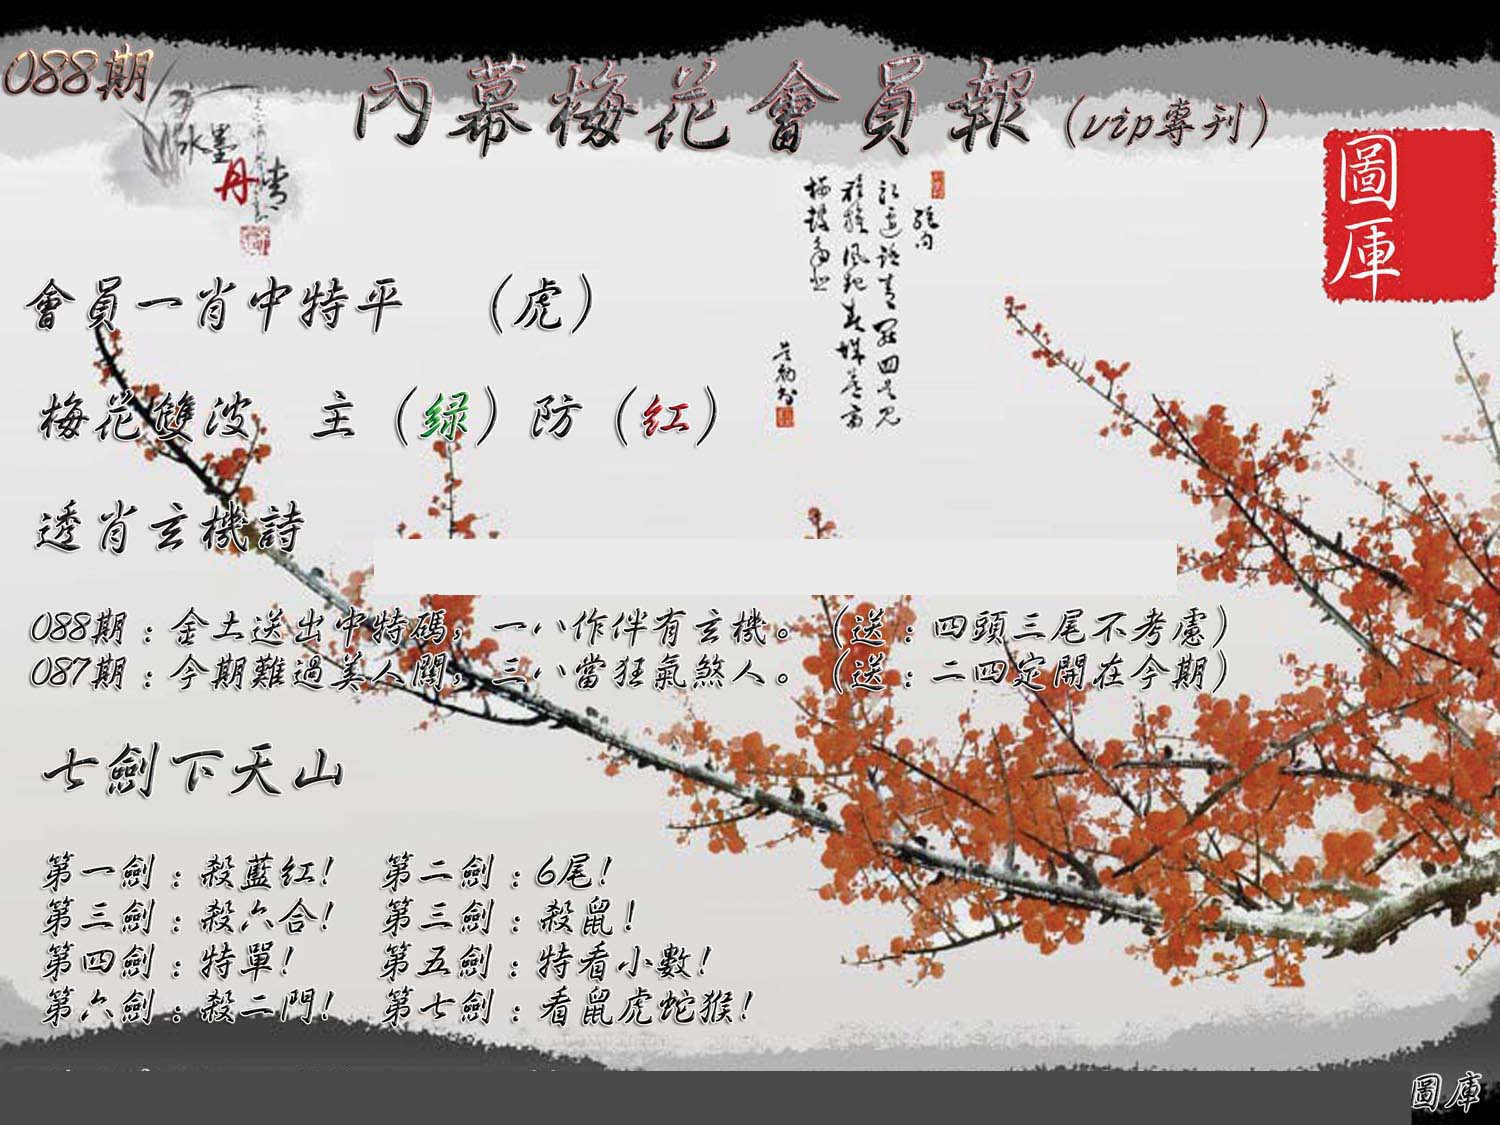 088期
內幕梅花會員報（vip專刊）
水墨
丹青
圖庫
會員一肖中特平　（虎）
梅花雙波　主（绿）防（红）
透肖玄機詩
088期：金土送出中特碼，一八作伴有玄機。（送：四頭三尾不考慮）
087期：今期難過美人關，三八當狂氣煞人。（送：二四定開在今期）
七劍下天山
第一劍：殺藍紅！　第二劍：6尾！
第三劍：殺六合！　第三劍：殺鼠！
第四劍：特單！　第五劍：特看小數！
第六劍：殺二門！　第七劍：看鼠虎蛇猴！
圖庫